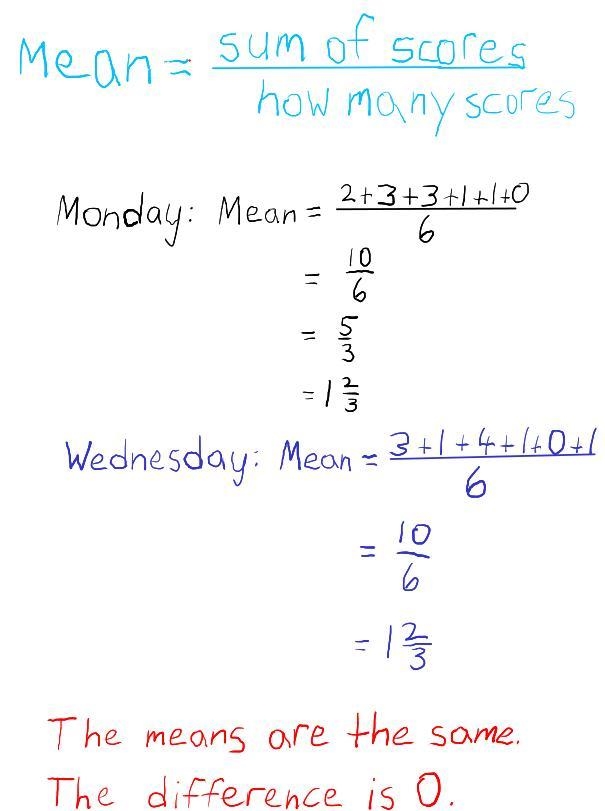 Mean = sum of scores
how many scores
Monday: Mean = 2+3+3+1+1+0
6
= 10
6
= 5
3
= 1 2
3
Wednesday: Mean = 3+1+4+1+0+1
6
= 10
6
= 1 2
3
The means are the same.
The difference is 0.